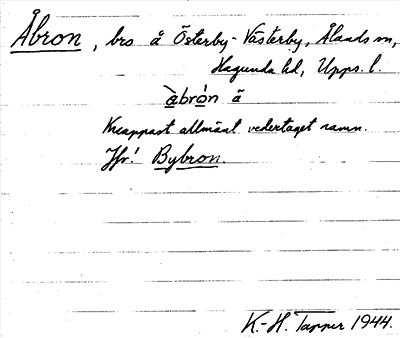 Åbron, bro å Österby-Västerby, Ålands sn,
Hagunda hd, Upps. l.
àbrón ä
Knappast allmänt vedertaget namn.
Jfr! Bybron.
K.-H. Tapper 1944.